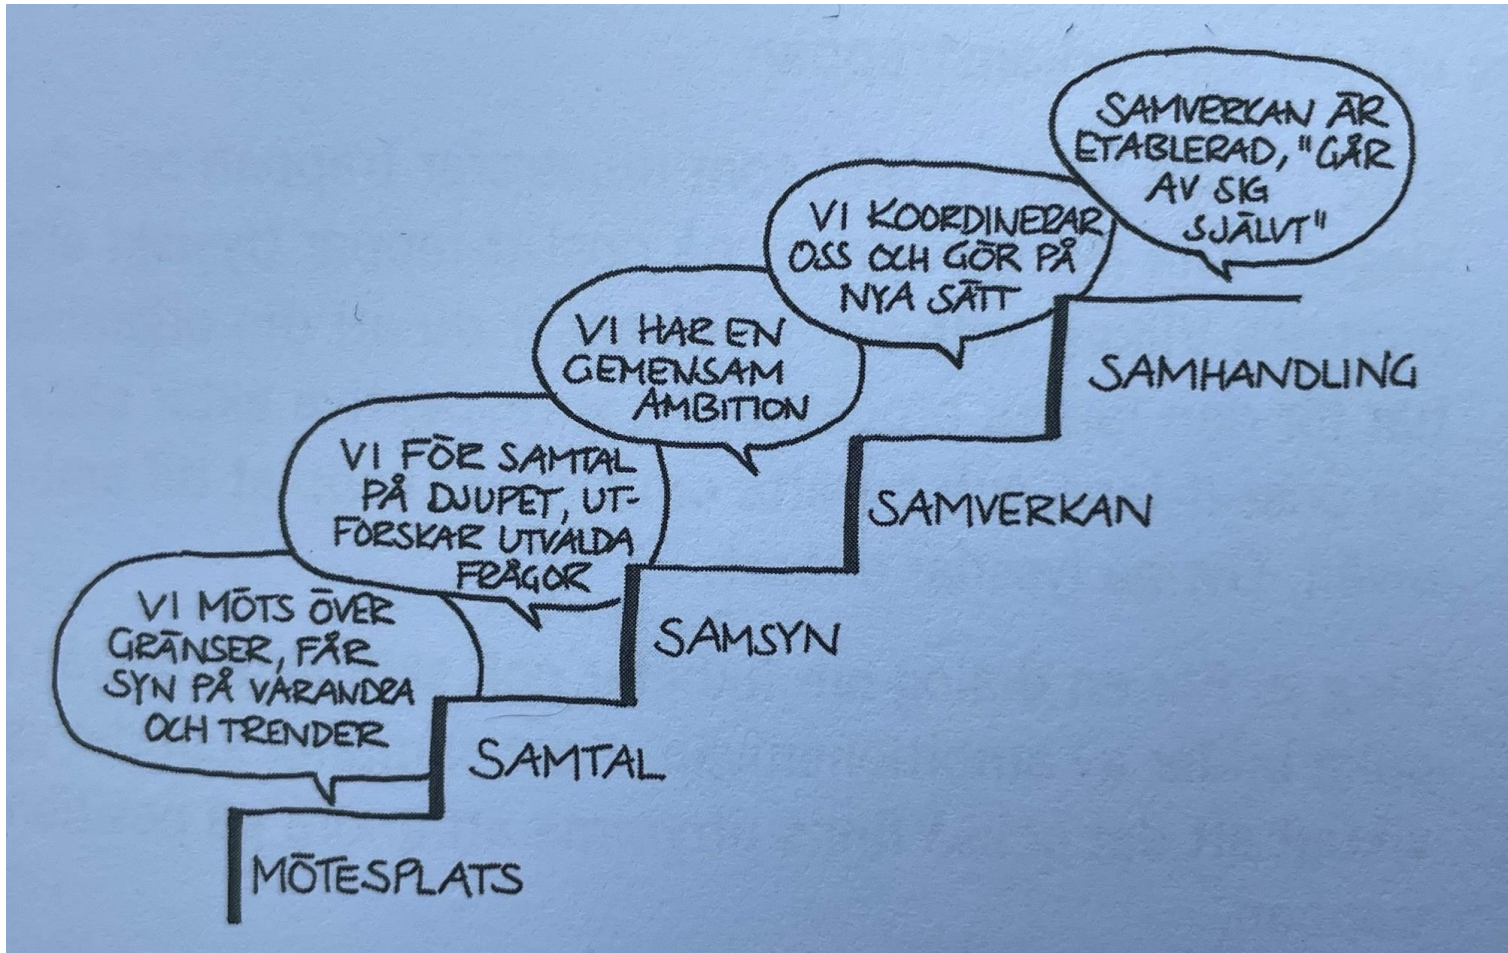 SAMVERKAN ÄR
ETABLERAD, "GÅR
AV SIG
SJÄLVT"
VI KOORDINERAR
OSS OCH GÖR PÅ
NYA SÄTT
SAMHANDLING
VI HAR EN
GEMENSAM
AMBITION
SAMVERKAN
VI FÖR SAMTAL
PÅ DJUPET, UT-
FORSKAR UTVALDA
FRÅGOR
SAMSYN
VI MÖTS ÖVER
GRÄNSER, FÅR
SYN PÅ VARANDRA
OCH TRENDER
SAMTAL
MÖTESPLATS